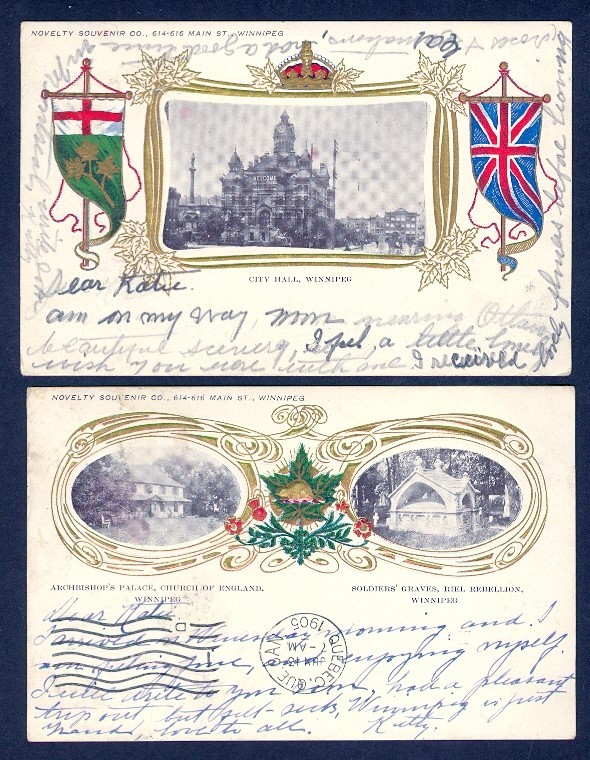 NOVELTY SOUVENIR CO., 614-616 MAIN ST., WINNIPEG
had a good time
WELCOME
CITY HALL, WINNIPEG
Dear Katie.
am on my way, now nearing Ottawa
beautiful scenery, I feel a little
wish you were with me I received
NOVELTY SOUVENIR CO., 614-616 MAIN ST., WINNIPEG
ARCHBISHOP'S PALACE, CHURCH OF ENGLAND, WINNIPEG
SOLDIERS' GRAVES, RIEL REBELLION, WINNIPEG
QUEBEC, QUE
7-AM
1905
Dear Katie
I arrived on morning and I
am feeling fine, and enjoying myself.
I will write to you soon, had a pleasant
trip out, but felt sick, Winnipeg is just
grand, love to all. Kitty.